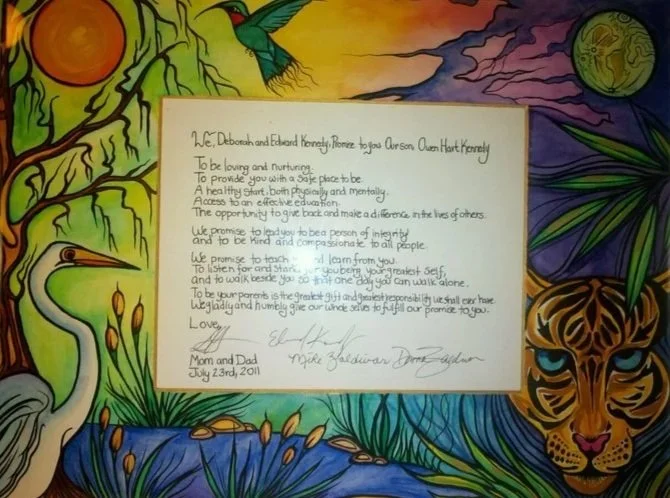 We, Deborah and Edward Kennedy, Promise to you Our son, Owen Hart Kennedy
To be loving and nurturing.
To provide you with a safe place to be.
A healthy start, both physically and mentally.
Access to an effective education.
The opportunity to give back and make a difference in the lives of others.
We promise to lead you to be a person of integrity
and to be kind and compassionate to all people.
We promise to teach and learn from you.
To listen for and stand for you being your greatest self,
and to walk beside you so that one day you can walk alone.
To be your parents is the greatest gift and greatest responsibility we shall ever have.
We gladly and humbly give our whole selves to fulfill our promise to you.
Love,
Mom and Dad
Mike Zaldivar
July 23rd, 2011